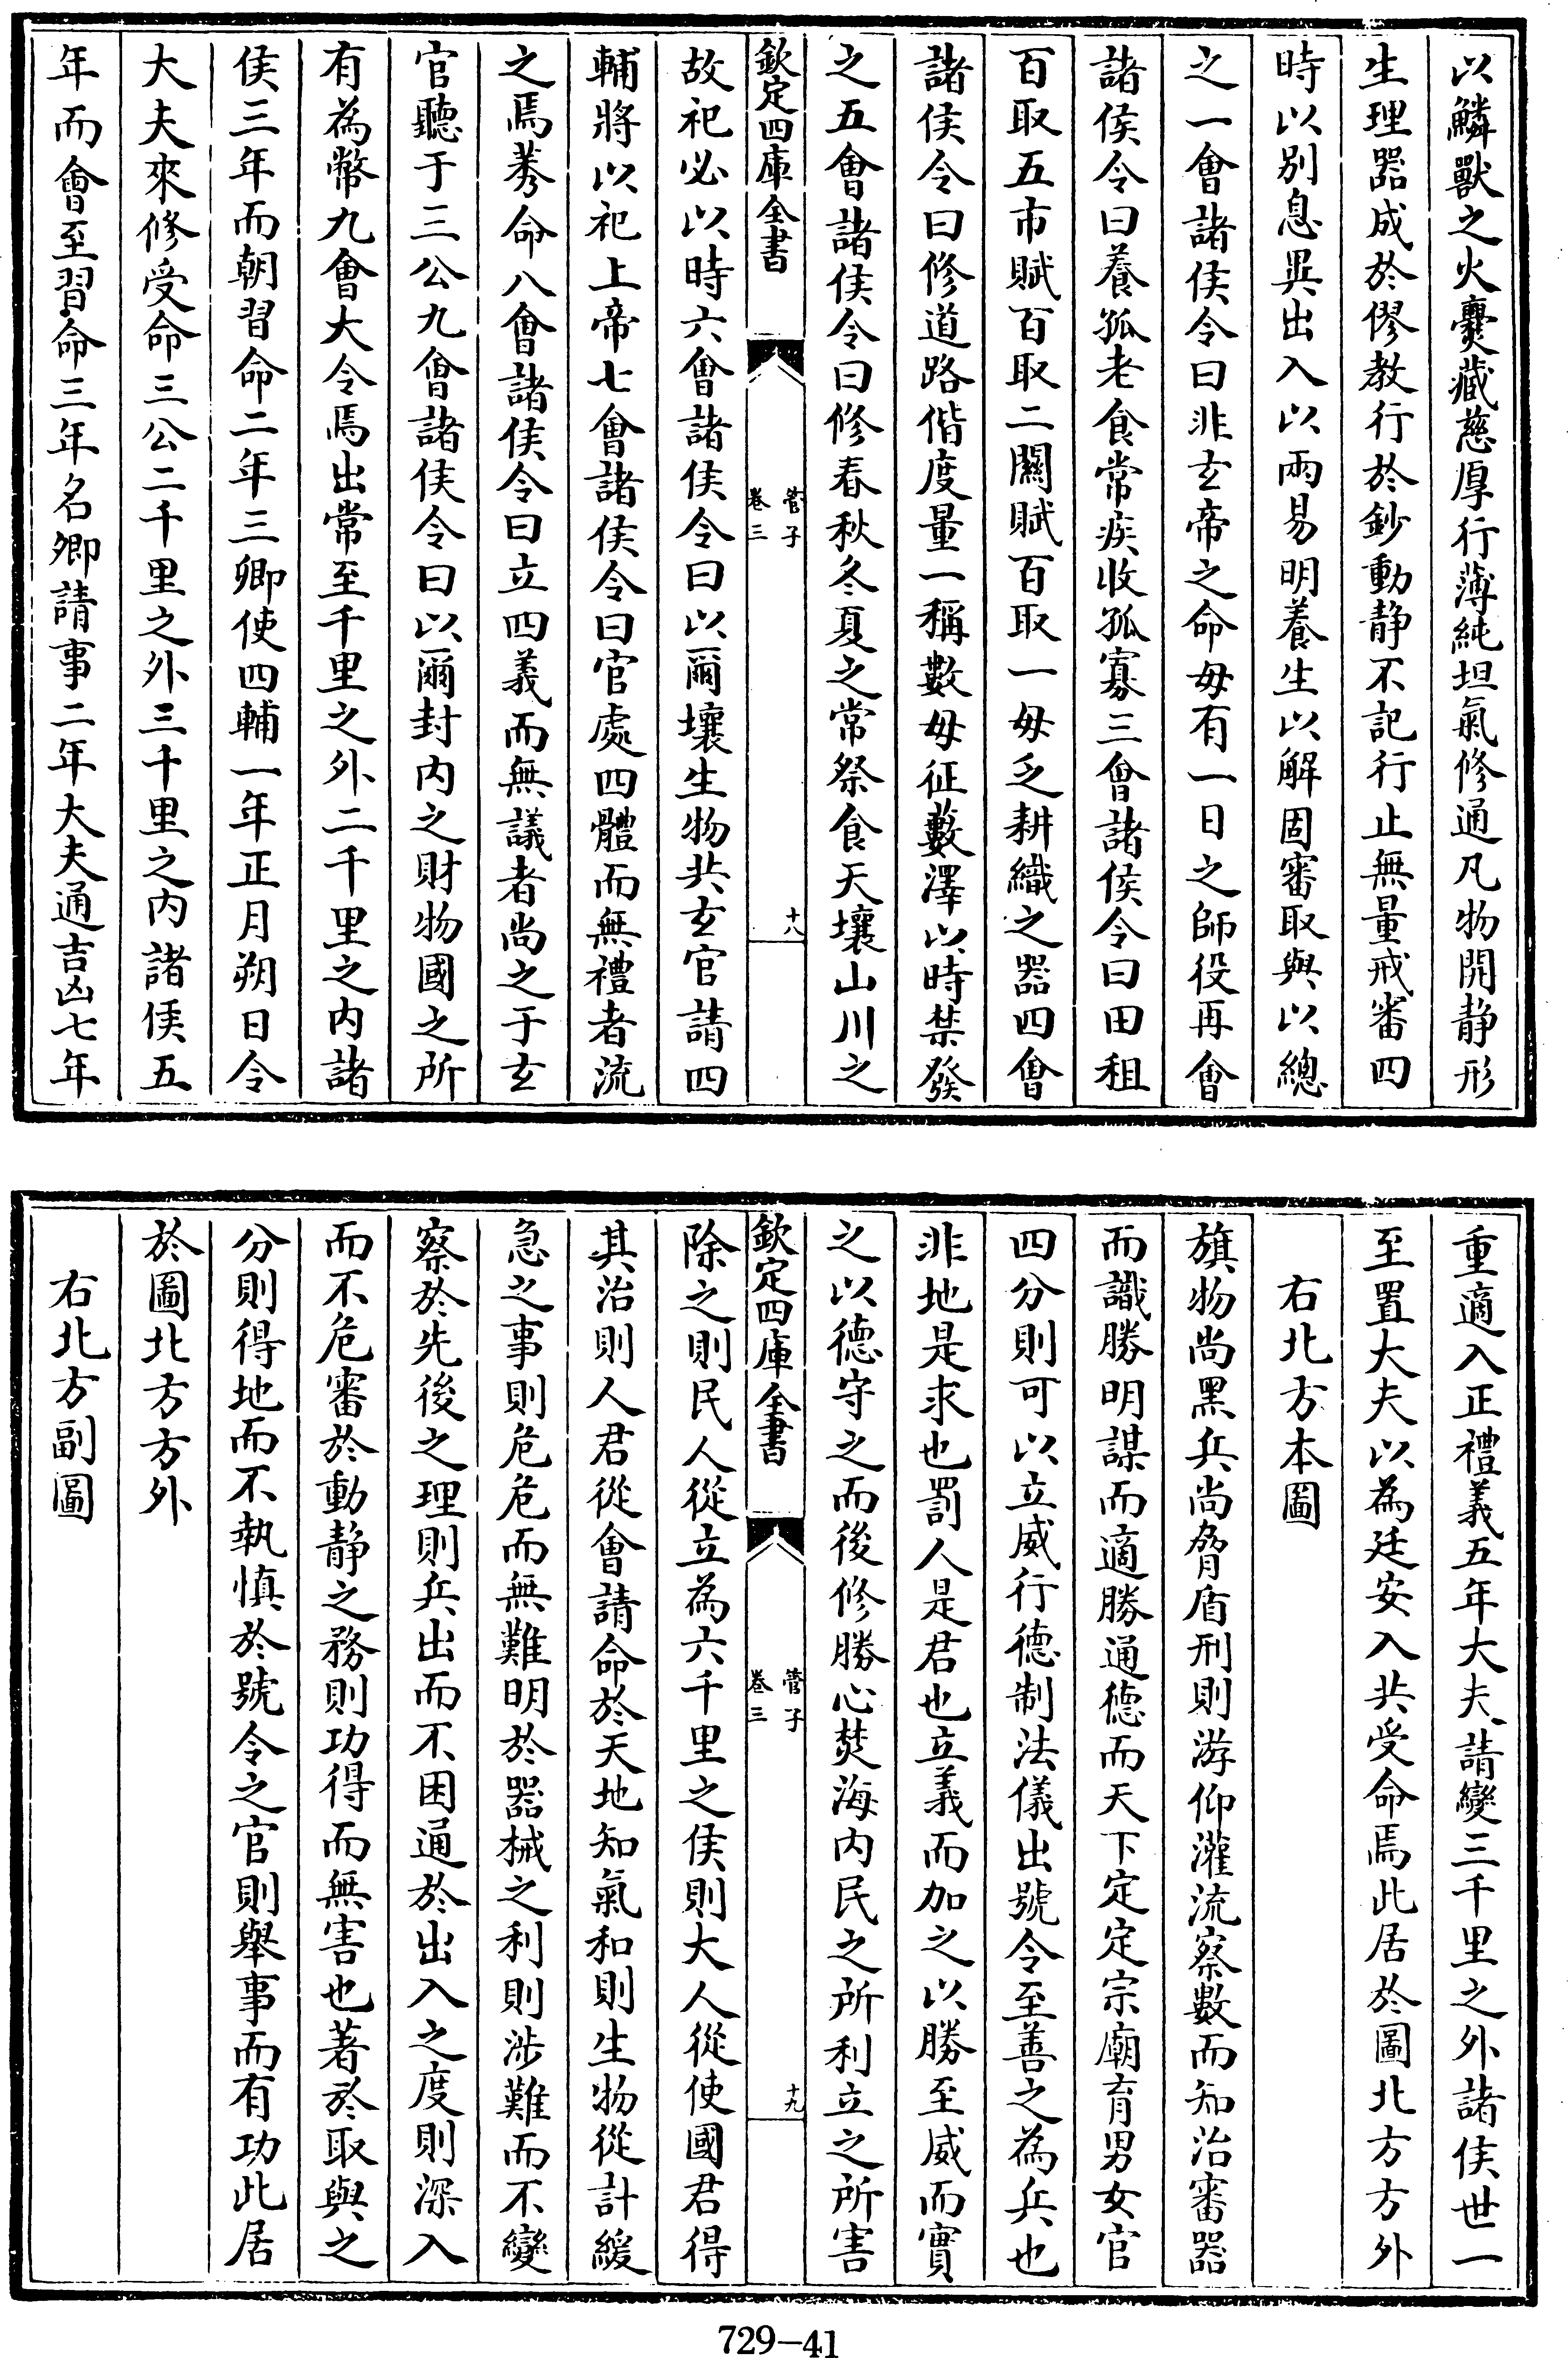 以鱗獸之火爨藏慈厚行薄純坦氣修通凡物開静形
生理器成於僇教行於鈔動静不記行止無量戒審四
時以别息異出入以兩易明養生以解固審取與以總
之一會諸侯令曰非玄帝之命毋有一日之師役再會
諸侯令曰養孤老食常疾收孤寡三會諸侯令曰田租
百取五市賦百取二關賦百取一毋乏耕織之器四會
諸侯令曰修道路偕度量一稱數毋征藪澤以時禁發
之五會諸侯令曰修春秋冬夏之常祭食天壤山川之
欽定四庫全書
管子
卷三
十八
故祀必以時六會諸侯令曰以爾壤生物共玄官請四
輔將以祀上帝七會諸侯令曰官處四體而無禮者流
之焉莠命八會諸侯令曰立四義而無議者尚之于玄
官聽于三公九會諸侯令曰以爾封内之財物國之所
有為幣九會大令焉出常至千里之外二千里之内諸
侯三年而朝習命二年三卿使四輔一年正月朔日令
大夫來修受命三公二千里之外三千里之内諸侯五
年而會至習命三年名卿請事二年大夫通吉凶七年
重適入正禮義五年大夫請變三千里之外諸侯世一
至置大夫以為廷安入共受命焉此居於圖北方方外
右北方本圖
旗物尚黑兵尚脅盾刑則游仰灌流察數而知治審器
而識勝明謀而適勝通德而天下定定宗廟育男女官
四分則可以立威行德制法儀出號令至善之為兵也
非地是求也罰人是君也立義而加之以勝至威而實
之以德守之而後修勝心焚海内民之所利立之所害
欽定四庫全書
管子
卷三
十九
除之則民人從立為六千里之侯則大人從使國君得
其治則人君從會請命於天地知氣和則生物從計緩
急之事則危危而無難明於器械之利則涉難而不變
察於先後之理則兵出而不困通於出入之度則深入
而不危審於動静之務則功得而無害也著於取與之
分則得地而不執慎於號令之官則舉事而有功此居
於圖北方方外
右北方副圖
729-41